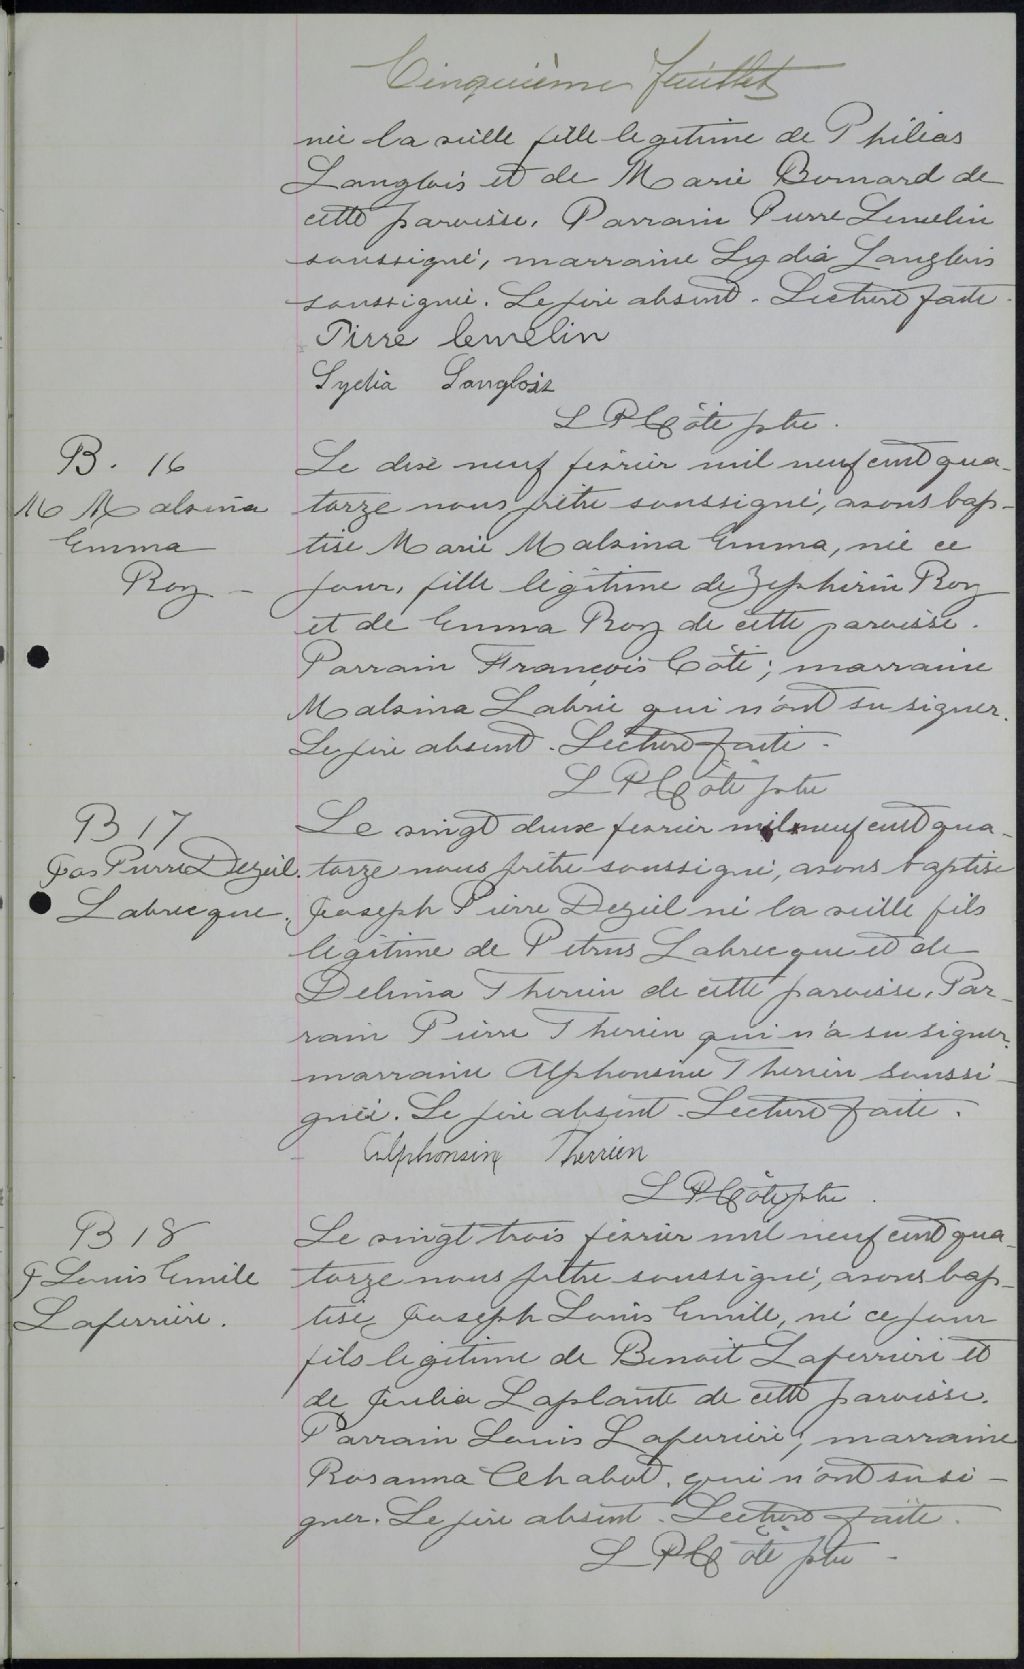 Cinquième feuillet
née la veille fille légitime de Philias
Langlois et de Marie Bernard de
cette paroisse. Parrain Pierre Lemelin
soussigné, marraine Lydia Langlois
soussignée. Le père absent. Lecture faite.
Pirre lemelin
Lydia Langlois
L P Côté ptre.
B. 16
M Malvina
Emma
Roy -
Le dix neuf février mil neuf cent qua-
torze nous prêtre soussigné, avons bap-
tisé Marie Malvina Emma, née ce
jour, fille légitime de Zephirin Roy
et de Emma Roy de cette paroisse.
Parrain François Côté; marraine
Malvina Labrie qui n'ont su signer.
Le père absent. Lecture faite.
L P Côté ptre
B 17
Jos Pierre Deziel
Labrecque.
Le vingt deux fevrier mil neuf cent qua-
torze nous prêtre soussigné, avons baptisé
Joseph Pierre Deziel né la veille fils
légitime de Petrus Labrecque et de
Delima Therien de cette paroisse. Par-
rain Pierre Therien qui n'a su signer.
marraine Alphonsine Therien soussi-
gnée. Le père absent. Lecture faite.
Alphonsine Therrien
L P Côté ptre.
B 18
J Louis Emile
Laferrière.
Le vingt trois février mil neuf cent qua-
torze nous prêtre soussigné, avons bap-
tisé Joseph Louis Emile, né ce jour
fils légitime de Benoit Laferrière et
de Julia Laplante de cette paroisse.
Parrain Louis Laferrière; marraine
Rosanna Chabot, qui n'ont su si-
gner. Le père absent. Lecture faite.
L P Côté ptre -